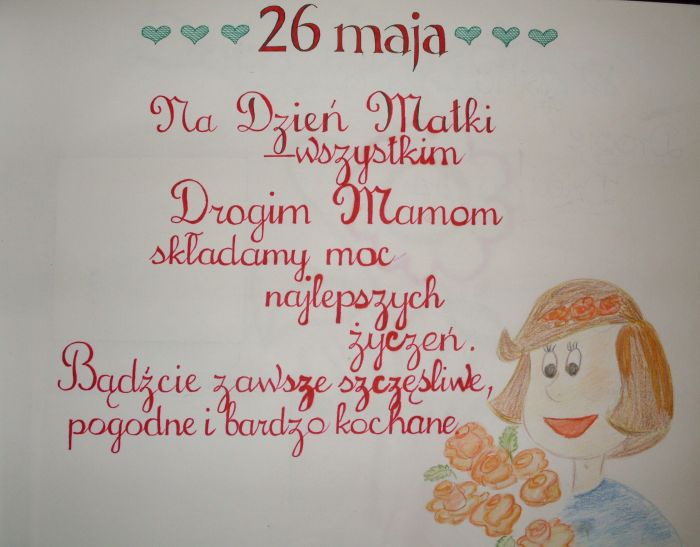 26 maja
Na Dzień Matki
—wszystkim
Drogim Mamom
składamy moc
najlepszych
życzeń.
Bądźcie zawsze szczęśliwe,
pogodne i bardzo kochane